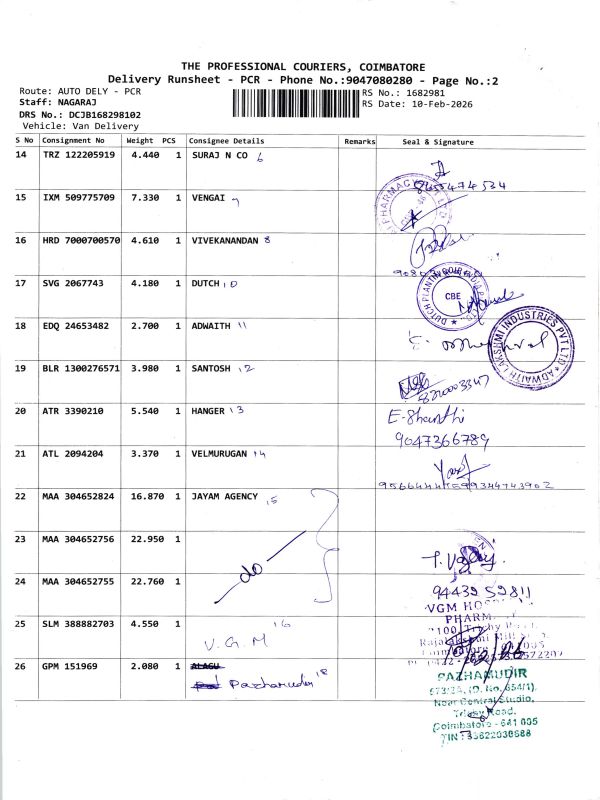 THE PROFESSIONAL COURIERS, COIMBATORE
Delivery Runsheet - PCR - Phone No.:9047080280 - Page No.:2
Route: AUTO DELY - PCR
RS No.: 1682981
Staff: NAGARAJ
RS Date: 10-Feb-2026
DRS No.: DCJB168298102
Vehicle: Van Delivery
S No Consignment No Weight PCS Consignee Details Remarks Seal & Signature
14 TRZ 122205919 4.440 1 SURAJ N CO 6
8655474534
15 IXM 509775709 7.330 1 VENGAI 7
16 HRD 7000700570 4.610 1 VIVEKANANDAN 8
17 SVG 2067743 4.180 1 DUTCH 10
CBE
18 EDQ 24653482 2.700 1 ADWAITH 11
ADWAITH LAKSHMI INDUSTRIES PVT LTD
19 BLR 1300276571 3.980 1 SANTOSH 12
8220003347
20 ATR 3390210 5.540 1 HANGER 13
E-Shanthi
9047366789
21 ATL 2094204 3.370 1 VELMURUGAN 14
22 MAA 304652824 16.870 1 JAYAM AGENCY 15
23 MAA 304652756 22.950 1
do
24 MAA 304652755 22.760 1
94439 59811
25 SLM 388882703 4.550 1 16
V.G.M
VGM
PHARM
100, Trichy
26 GPM 151969 2.080 1 ALAGU
Pazhamudir 18
PAZHAMUDIR
Near Central Studio,
Trichy Road,
Coimbatore - 641 005
TIN : 33622030688